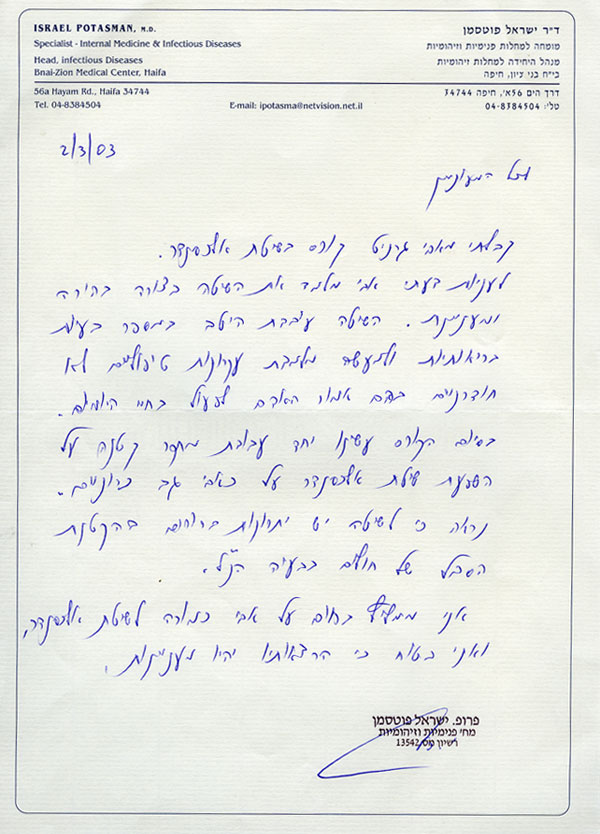 ISRAEL POTASMAN, M.D.
Specialist - Internal Medicine & Infectious Diseases
Head, infectious Diseases
Bnai-Zion Medical Center, Haifa
ד״ר ישראל פוטסמן
מומחה למחלות פנימיות וזיהומיות
מנהל היחידה למחלות זיהומיות
בי״ח בני ציון, חיפה
56a Hayam Rd., Haifa 34744
Tel. 04-8384504
E-mail: ipotasma@netvision.net.il
דרך הים 56א׳, חיפה 34744
טל׳: 04-8384504
2/3/03
לכל המעוניין
קבלתי מאבי גרניט קורס בשיטת אלכסנדר.
לעניות דעתי אבי מלמד את השיטה בצורה בהירה
ומעניינת. השיטה עובדת היטב במספר בעיות
בריאותיות ולמעשה מלמדת עקרונות טיפוליים לא
חודרניים בהם אמור האדם לפעול בחיי היומיום.
בסיום הקורס עשינו יחד עבודת מחקר קטנה על
השפעת שיטת אלכסנדר על כאבי גב כרוניים.
נראה כי לשיטה יש יתרונות ברורים בהקטנת
הסבל של חולים בבעיה הנ״ל.
אני ממליץ בחום על אבי כמורה לשיטת אלכסנדר,
ואני בטוח כי הרצאותיו יהיו מעניינות.
פרופ. ישראל פוטסמן
מח׳ פנימיות וזיהומיות
רשיון מס 13542